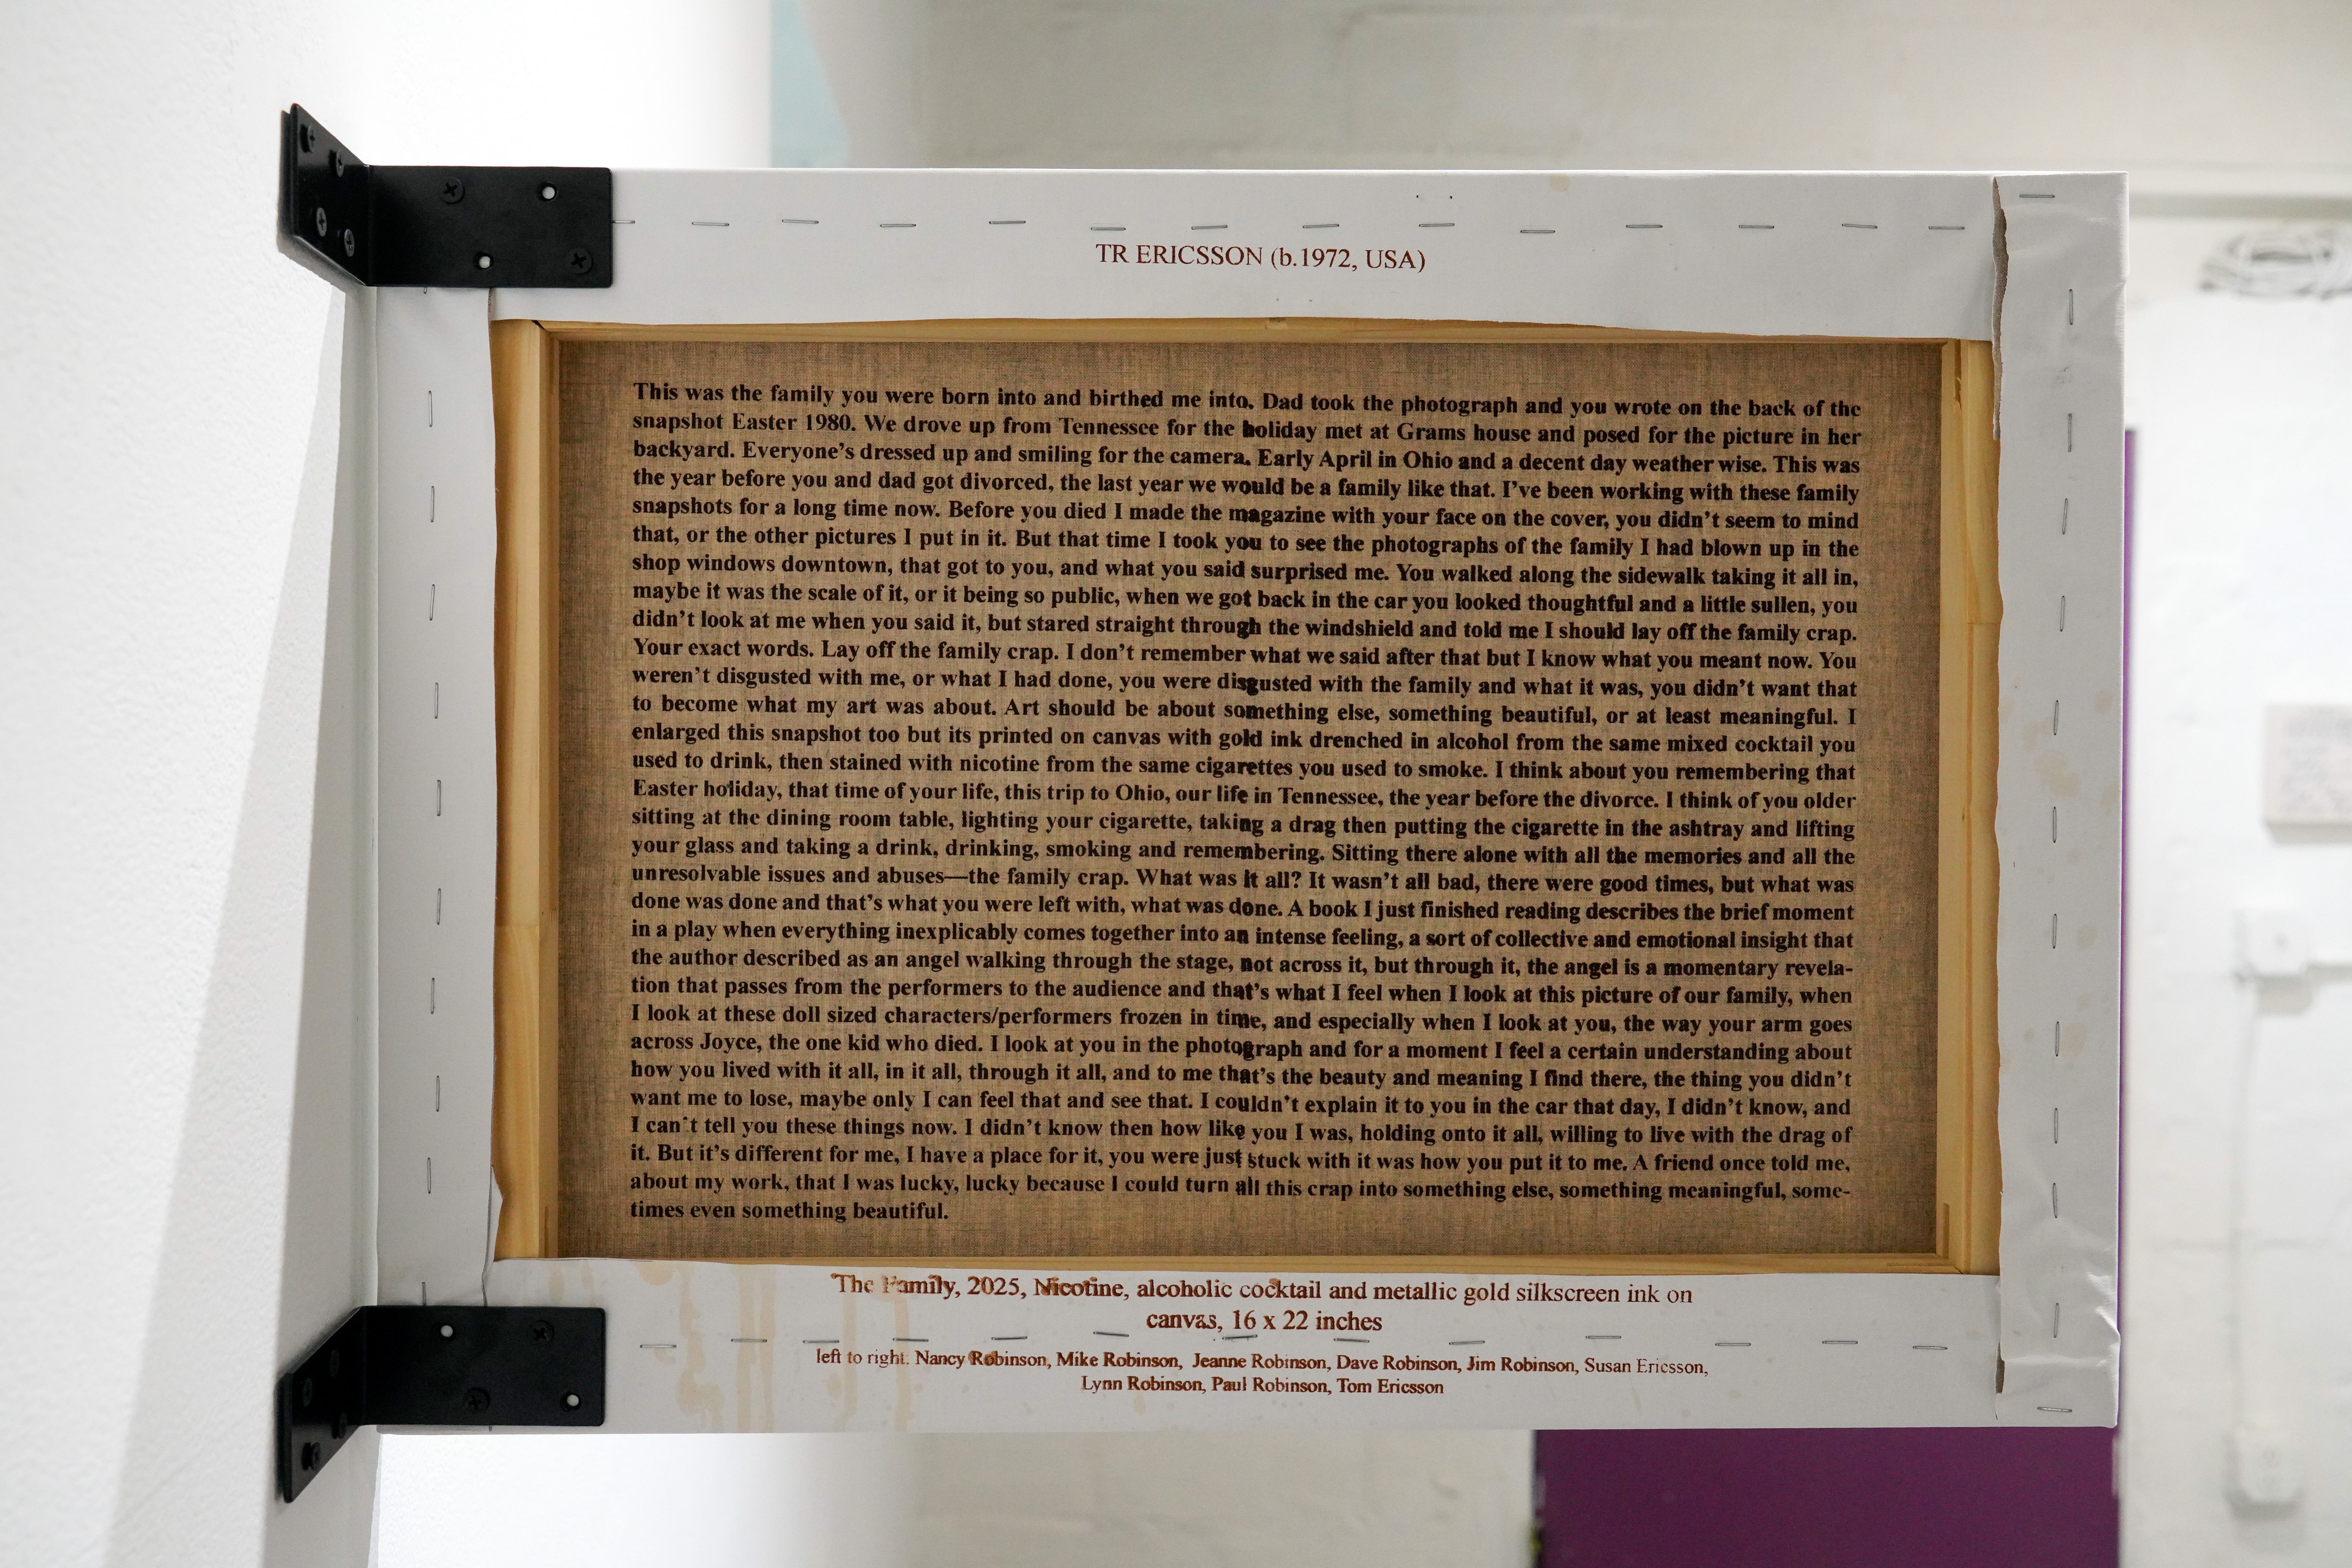 TR ERICSSON (b.1972, USA)
This was the family you were born into and birthed me into. Dad took the photograph and you wrote on the back of the
snapshot Easter 1980. We drove up from Tennessee for the holiday met at Grams house and posed for the picture in her
backyard. Everyone’s dressed up and smiling for the camera. Early April in Ohio and a decent day weather wise. This was
the year before you and dad got divorced, the last year we would be a family like that. I’ve been working with these family
snapshots for a long time now. Before you died I made the magazine with your face on the cover, you didn’t seem to mind
that, or the other pictures I put in it. But that time I took you to see the photographs of the family I had blown up in the
shop windows downtown, that got to you, and what you said surprised me. You walked along the sidewalk taking it all in,
maybe it was the scale of it, or it being so public, when we got back in the car you looked thoughtful and a little sullen, you
didn’t look at me when you said it, but stared straight through the windshield and told me I should lay off the family crap.
Your exact words. Lay off the family crap. I don’t remember what we said after that but I know what you meant now. You
weren’t disgusted with me, or what I had done, you were disgusted with the family and what it was, you didn’t want that
to become what my art was about. Art should be about something else, something beautiful, or at least meaningful. I
enlarged this snapshot too but its printed on canvas with gold ink drenched in alcohol from the same mixed cocktail you
used to drink, then stained with nicotine from the same cigarettes you used to smoke. I think about you remembering that
Easter holiday, that time of your life, this trip to Ohio, our life in Tennessee, the year before the divorce. I think of you older
sitting at the dining room table, lighting your cigarette, taking a drag then putting the cigarette in the ashtray and lifting
your glass and taking a drink, drinking, smoking and remembering. Sitting there alone with all the memories and all the
unresolvable issues and abuses—the family crap. What was it all? It wasn’t all bad, there were good times, but what was
done was done and that’s what you were left with, what was done. A book I just finished reading describes the brief moment
in a play when everything inexplicably comes together into an intense feeling, a sort of collective and emotional insight that
the author described as an angel walking through the stage, not across it, but through it, the angel is a momentary revela-
tion that passes from the performers to the audience and that’s what I feel when I look at this picture of our family, when
I look at these doll sized characters/performers frozen in time, and especially when I look at you, the way your arm goes
across Joyce, the one kid who died. I look at you in the photograph and for a moment I feel a certain understanding about
how you lived with it all, in it all, through it all, and to me that’s the beauty and meaning I find there, the thing you didn’t
want me to lose, maybe only I can feel that and see that. I couldn’t explain it to you in the car that day, I didn’t know, and
I can’t tell you these things now. I didn’t know then how like you I was, holding onto it all, willing to live with the drag of
it. But it’s different for me, I have a place for it, you were just stuck with it was how you put it to me. A friend once told me,
about my work, that I was lucky, lucky because I could turn all this crap into something else, something meaningful, some-
times even something beautiful.
The Family, 2025, Nicotine, alcoholic cocktail and metallic gold silkscreen ink on
canvas, 16 x 22 inches
left to right. Nancy Robinson, Mike Robinson, Jeanne Robinson, Dave Robinson, Jim Robinson, Susan Ericsson,
Lynn Robinson, Paul Robinson, Tom Ericsson